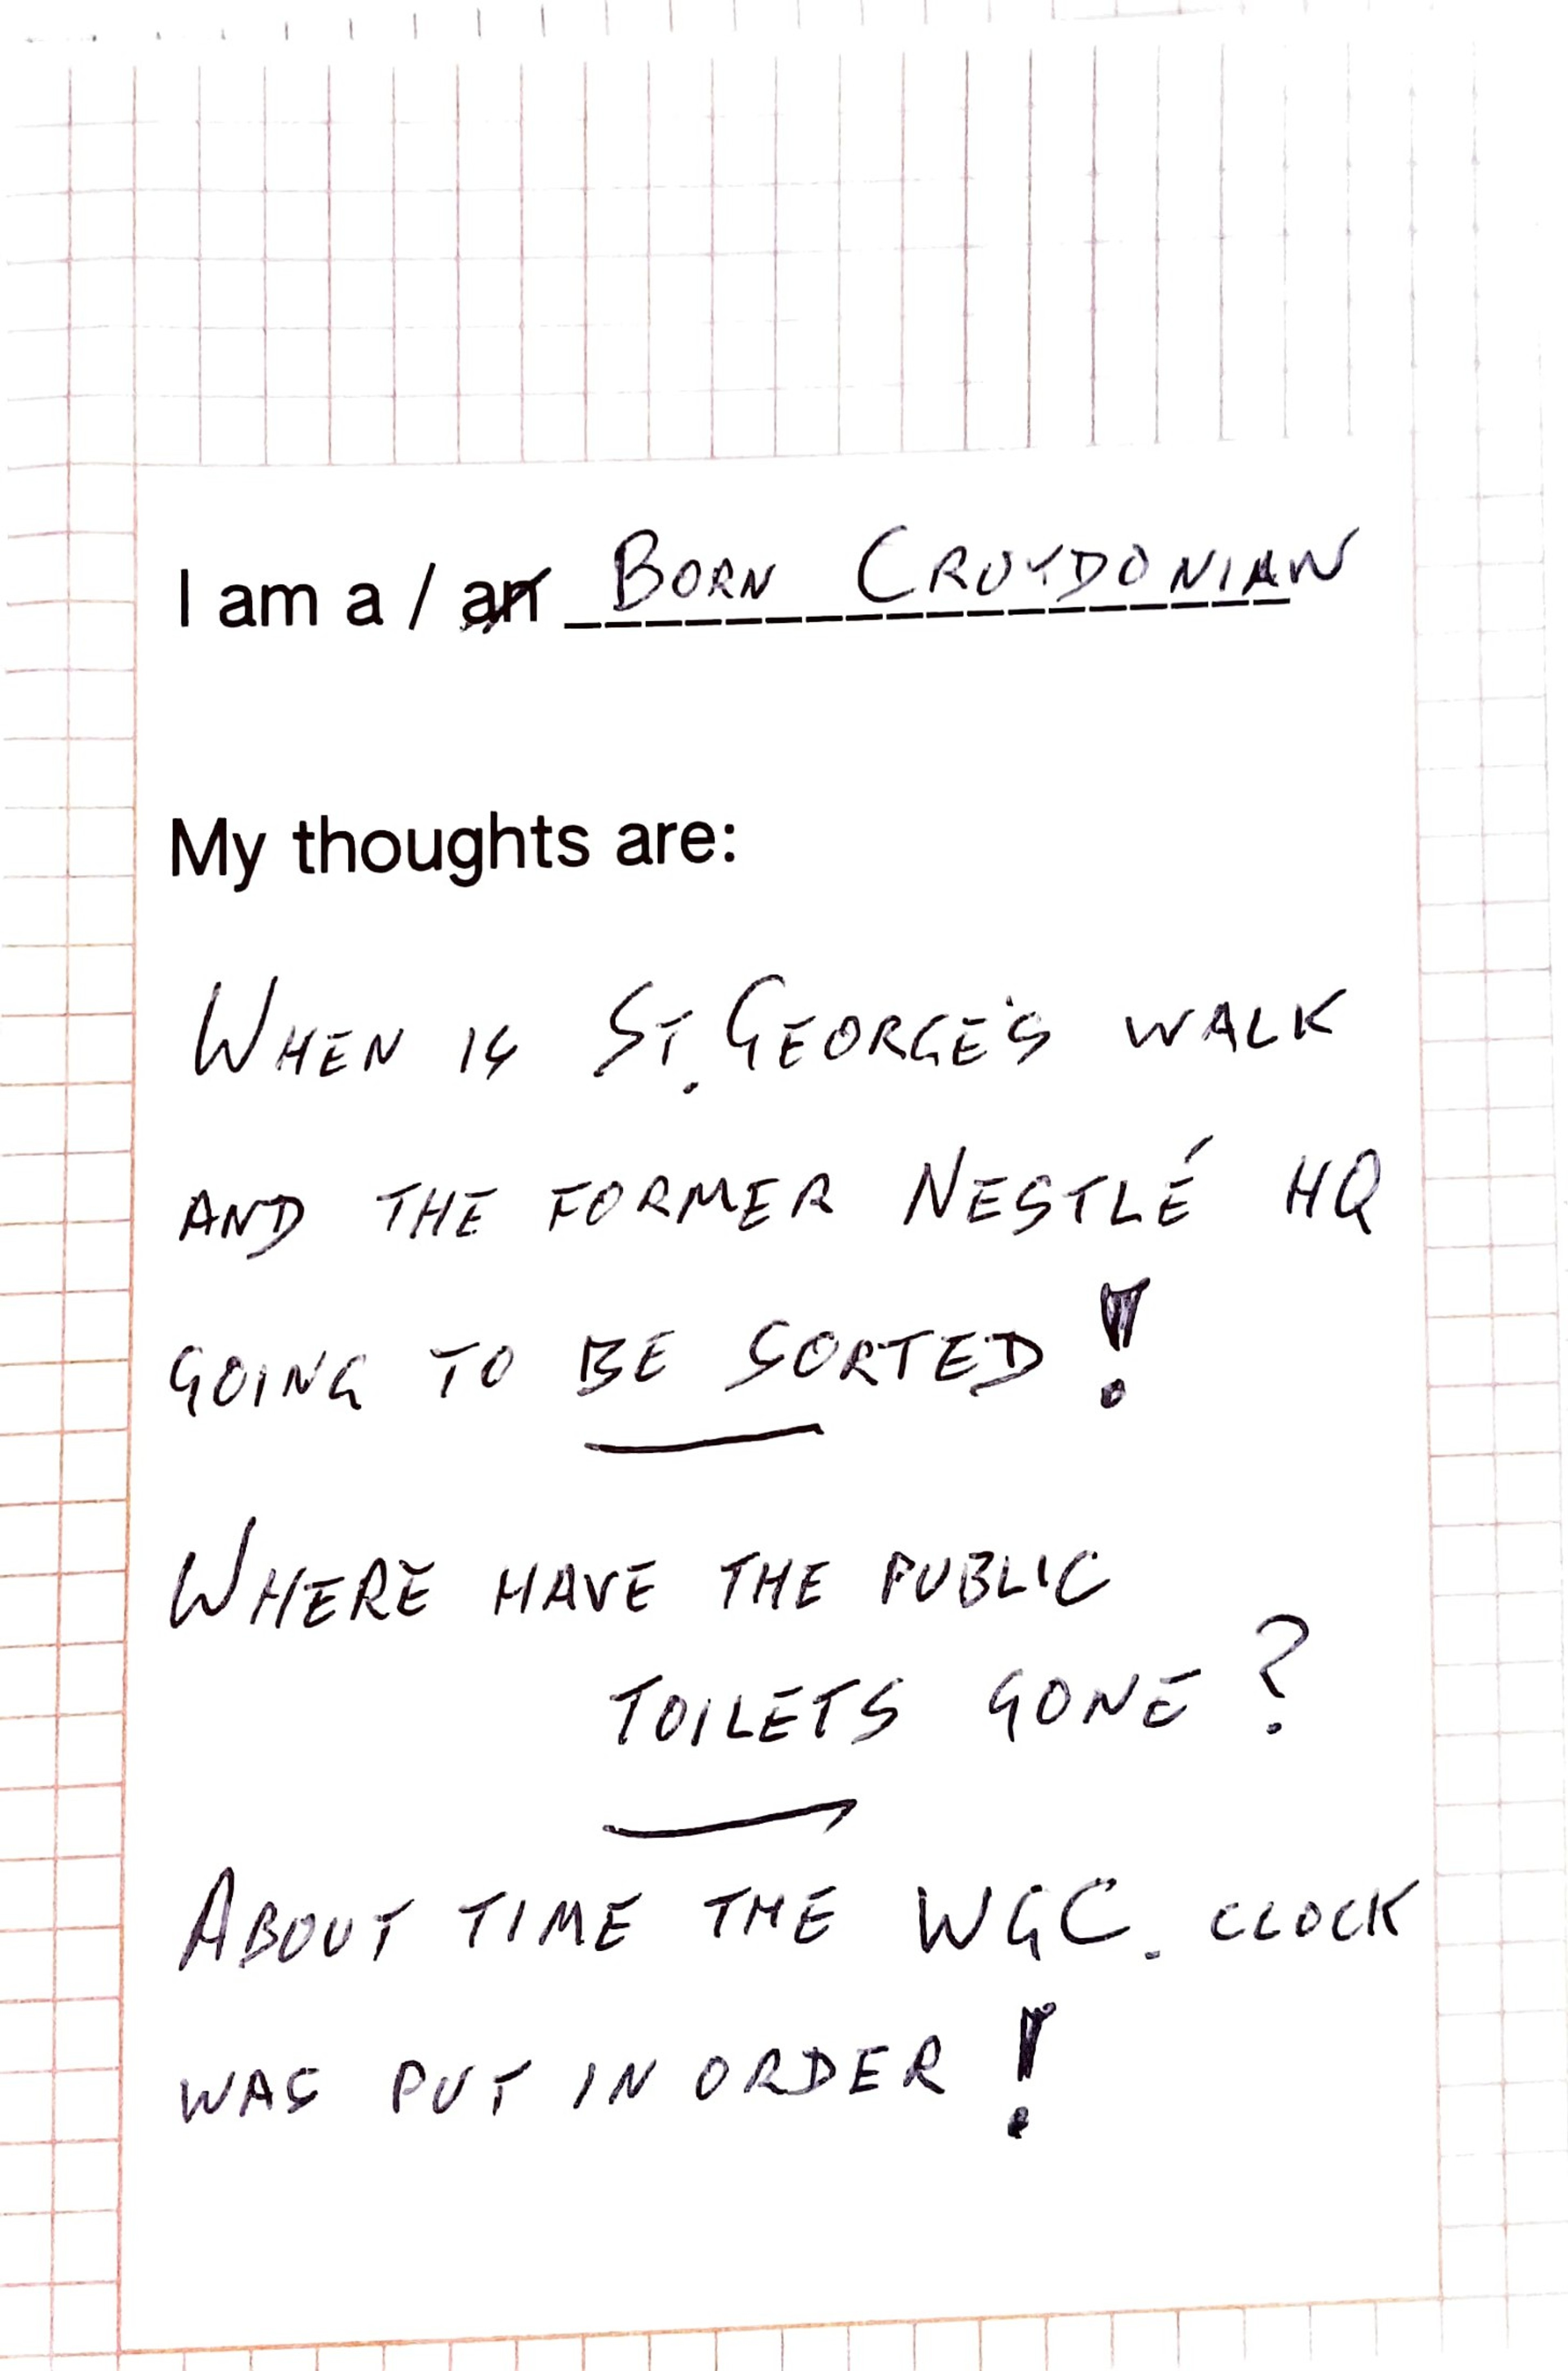 I am a / an BORN CROYDONIAN
My thoughts are:
WHEN IS ST. GEORGE'S WALK
AND THE FORMER NESTLÉ HQ
GOING TO BE SORTED!
WHERE HAVE THE PUBLIC
TOILETS GONE?
ABOUT TIME THE WGC. CLOCK
WAS PUT IN ORDER!